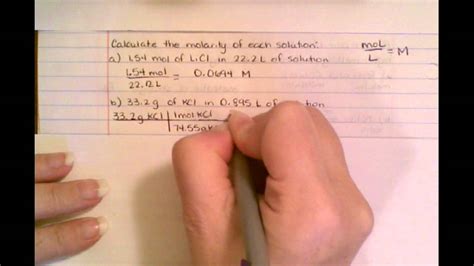 Calculate the molarity of each solution:
mol/L = M
a) 1.54 mol of LiCl in 22.2 L of solution
1.54 mol / 22.2 L = 0.0694 M
b) 33.2 g of KCl in 0.895 L of solution
33.2 g KCl | 1 mol KCl
74.55 g K